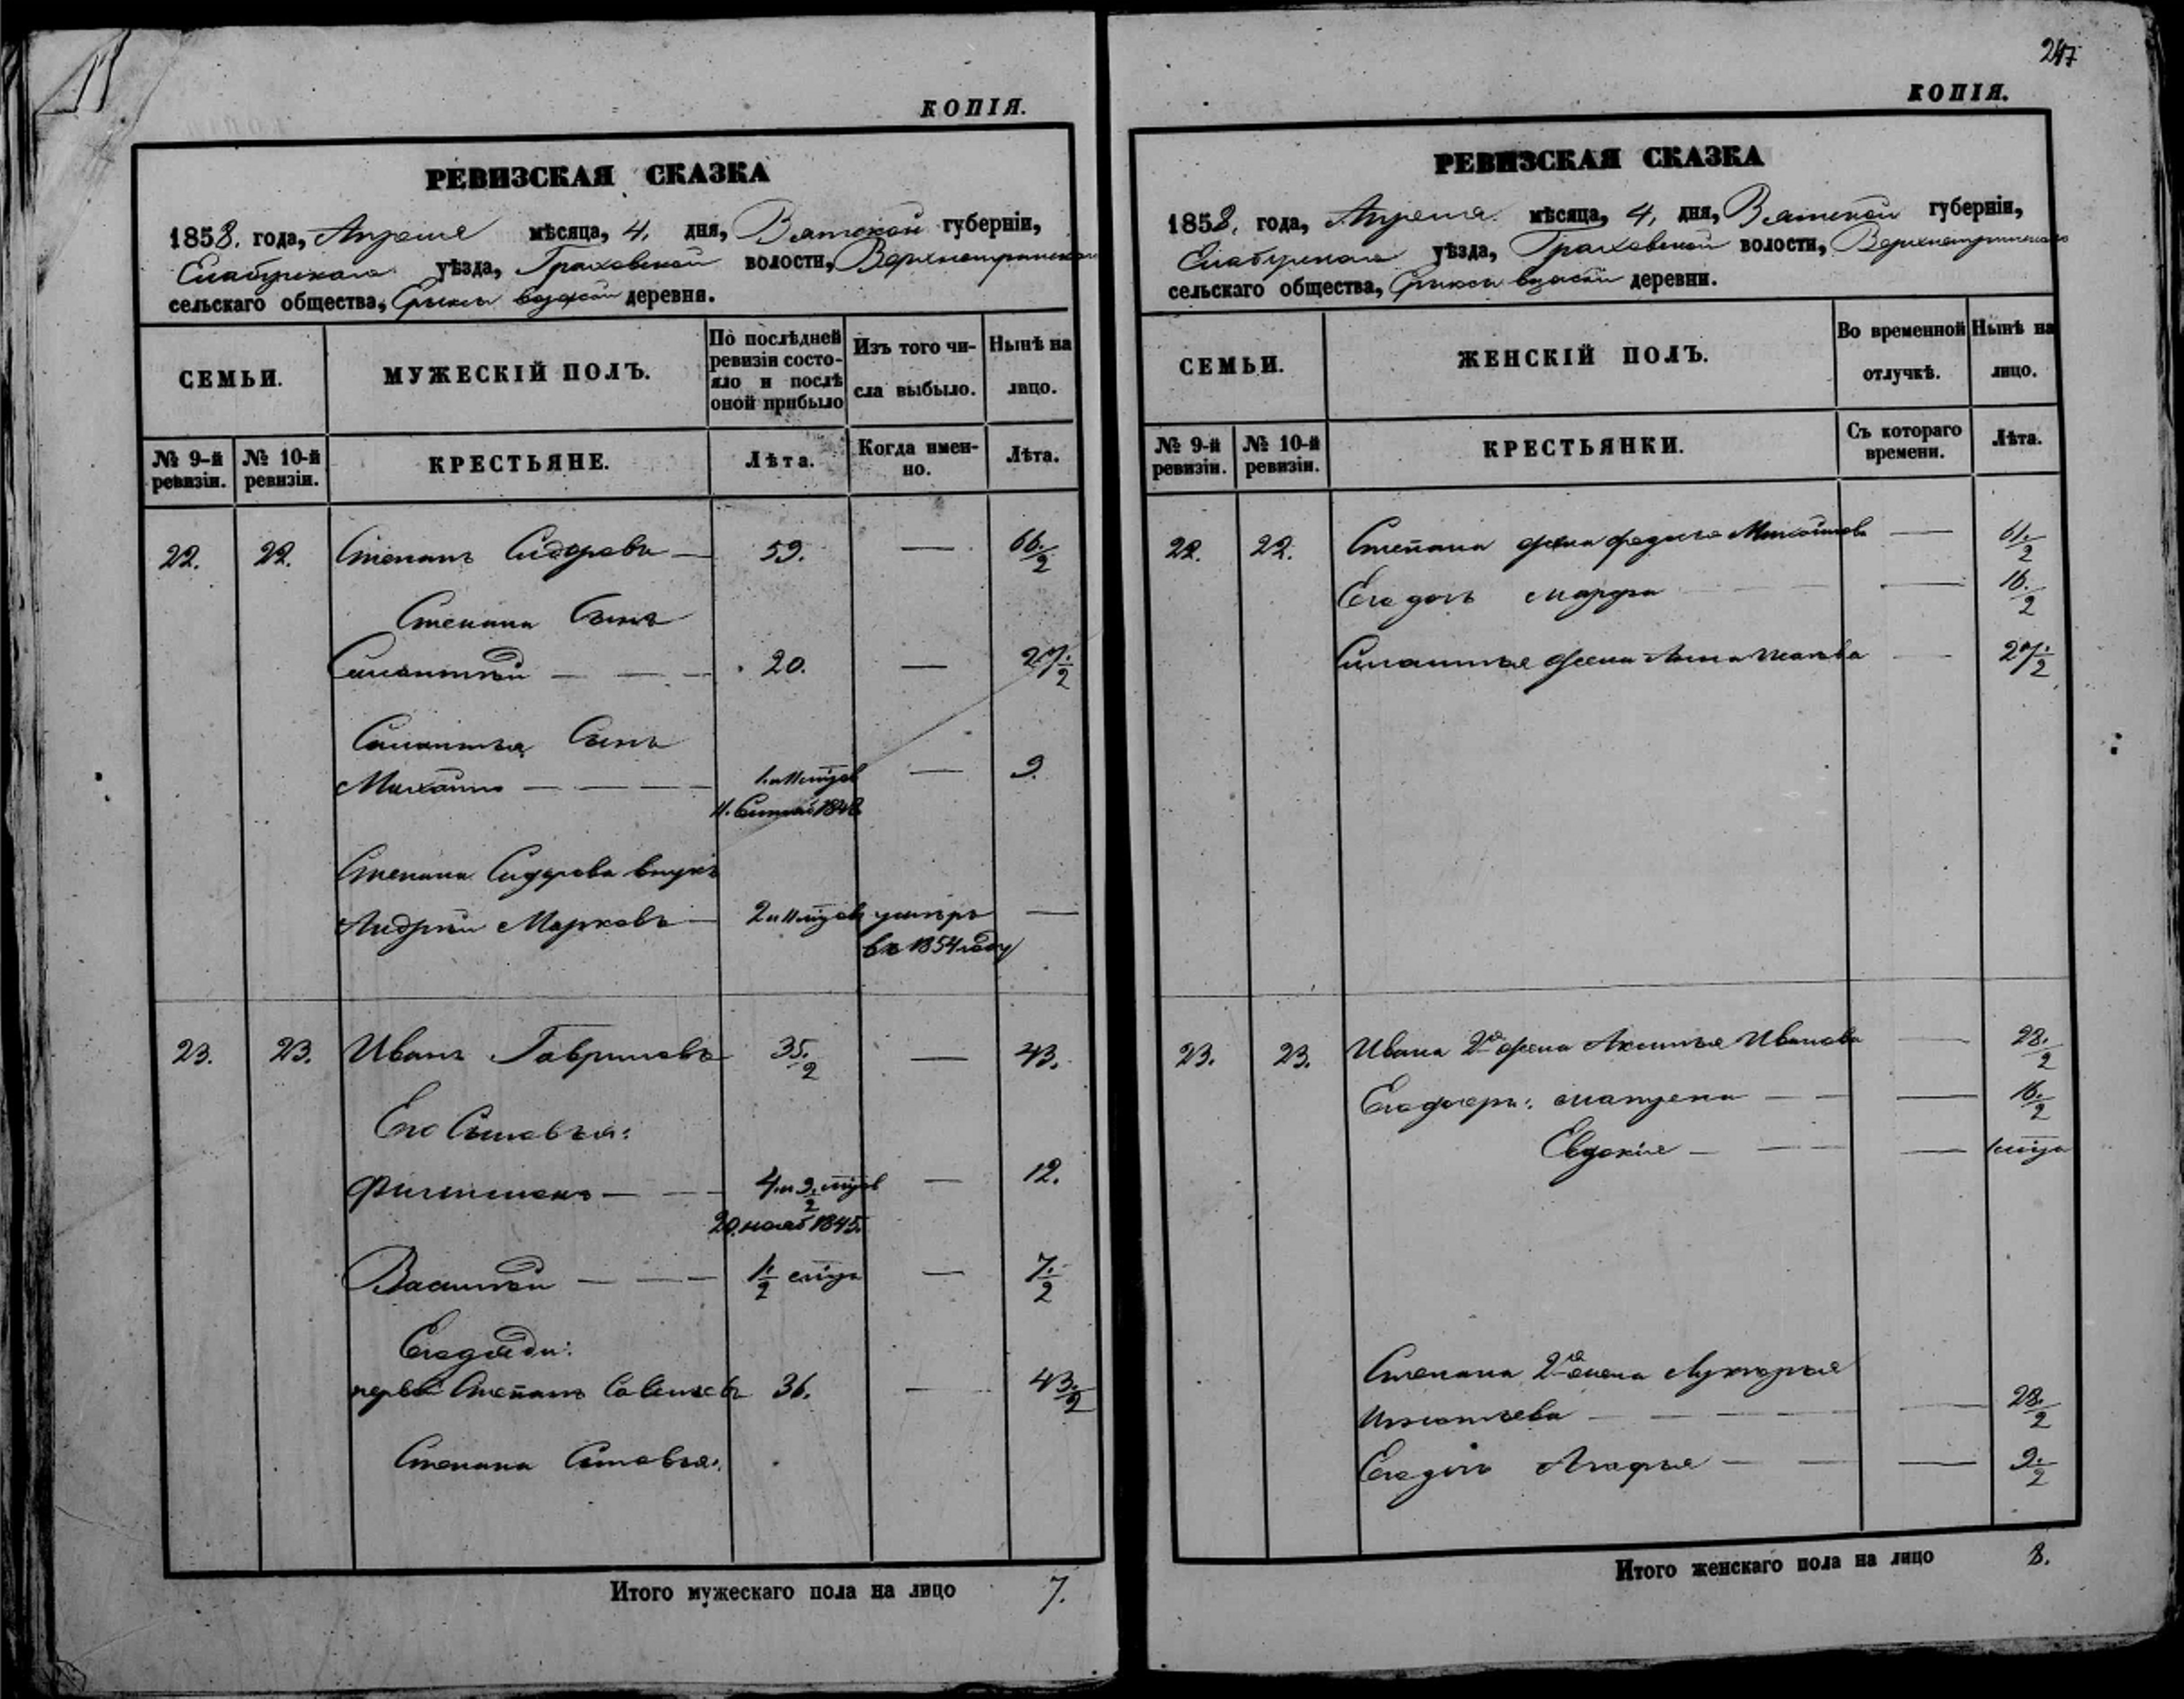 КОПІЯ.
РЕВИЗСКАЯ СКАЗКА
1858. года, Апреля мѣсяца, 4. дня, Вятской губерніи,
Елабужскаго уѣзда, Граховской волости,
сельскаго общества, деревня.
СЕМЬИ.
МУЖЕСКІЙ ПОЛЪ.
По послѣдней ревизіи состояло и послѣ оной прибыло
Изъ того числа выбыло.
Нынѣ на лицо.
№ 9-й ревизіи.
№ 10-й ревизіи.
КРЕСТЬЯНЕ.
Лѣта.
Когда именно.
Лѣта.
22. 22. Степанъ Сидоровъ — 59. — 66. 1/2
Степана Сынъ
Силантѣй — — — 20. — 27. 1/2
Силантья Сынъ
Михайло — — — — 9.
Степана Сидорова внукъ
Андрѣй Марковъ — умеръ —
въ 1854 году
23. 23. Иванъ Гавриловъ 35. 1/2 — 43.
Его Сыновья:
Филимонъ — — — 12.
20. нояб 1845.
Василѣй — — — 1/2 — 7. 1/2
Его дяди:
первой Степанъ Савельевъ 36. — 43. 1/2
Степана Сыновья:
Итого мужескаго пола на лицо 7.
247
КОПІЯ.
РЕВИЗСКАЯ СКАЗКА
1858. года, Апреля мѣсяца, 4. дня, Вятской губерніи,
Елабужскаго уѣзда, Граховской волости,
сельскаго общества, деревни.
СЕМЬИ.
ЖЕНСКІЙ ПОЛЪ.
Во временной отлучкѣ.
Нынѣ на лицо.
№ 9-й ревизіи.
№ 10-й ревизіи.
КРЕСТЬЯНКИ.
Съ котораго времени.
Лѣта.
22. 22. Степана жена Федосья Михайлова — 61. 1/2
Его дочь Марфа — 16. 1/2
Силантья жена Анна — 27. 1/2
23. 23. Ивана 2я жена Аксинья Иванова — 28. 1/2
Его дочери: Матрена — — — 16. 1/2
Евдокія — — —
Степана 2я жена Лукерья
Игнатьева — — — — 28. 1/2
Его дочь Агафья — — — 9. 1/2
Итого женскаго пола на лицо 8.